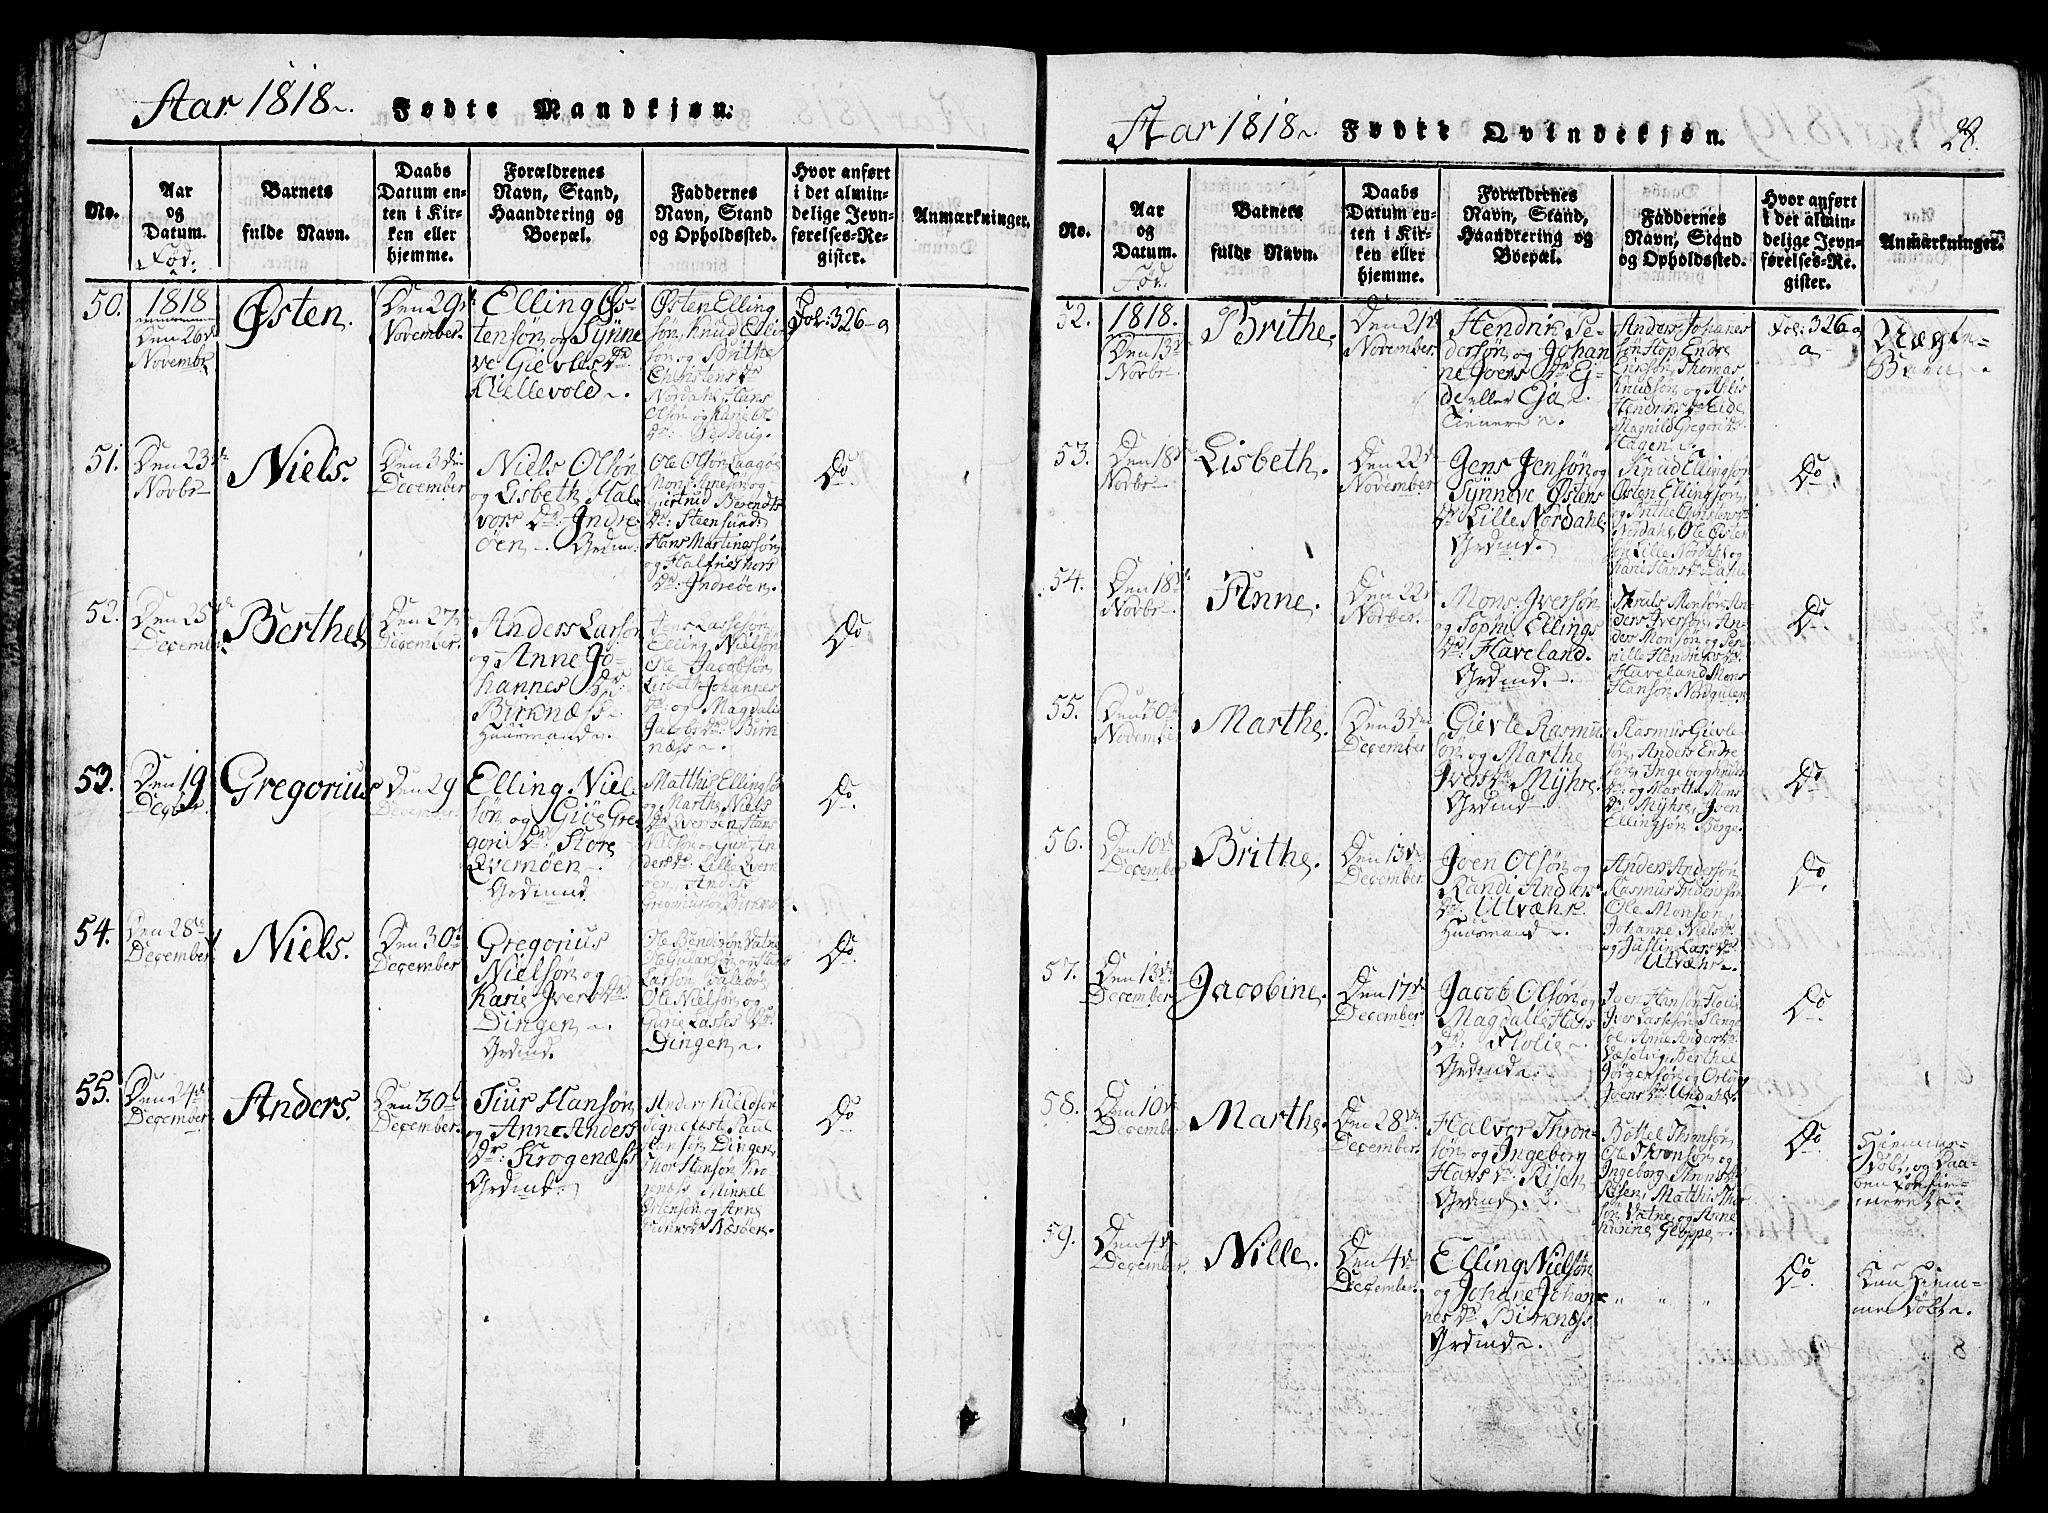 Aar 1818. Fødte Mandkjøn.
No.
Aar
og
Datum.
Fød:
Barnets
fulde Navn.
Daabs
Datum en-
ten i Kir-
ken eller
hjemme.
Forældrenes
Navn, Stand,
Haandtering og
Boepæl.
Faddernes
Navn, Stand
og Opholdssted.
Hvor anført
i det almin-
delige Jevn-
førelses-Re-
gister.
Anmærkninger.
50.
1818
Den 26de
Novembr
Østen.
Den 29de
November.
Elling Øs-
tensøn og Synne
ve Gievles Dr.
Kiellevold.
Østen Elling
søn, Knud Elling
søn og Brithe
Christens Dr
Nordahl, Hans
Olsøn og Karie Ols
Dr:
Fol: 326 a
51.
Den 23de
Novbr
Niels.
Den 3die
December
Niels Olsøn
og Lisbeth Hal-
vors Dr. Indre-
øen. Grdmd.
Ole Olsøn Laagøe
Mons Arneson og
Giertrud Berendts
Dr: Steensund
Hans Martinussøn
og Halfrie Thors
Dr: Indreøen.
Do
52.
Den 25de
December
Berthel
Den 27de
December.
Anders Larsøn
og Anne Jo-
hannes Dr:
Birknæss
Huusmand.
Jens Lassesøn
Elling Nielsøn
Ole Jacobsøn
Lisbeth Johannes
Dr: og Magdali
Jacobs Dr: Birk
næss.
Do
53.
Den 19
Decbr.
Gregorius
Den 29
December.
Elling Niel
søn og Giøe Gre
gori Dr. Store
Qvernøen
Grdmand
Matthis Ellingsøn
og Marthe Niels
Dr Qvernøen, Hans
Nielsøn og Guri An
ders Dr. Lille Qvern
øen, Anders
Gregoriusson Birknæs
Do
54.
Den 28de
December
Niels.
Den 30d
December
Gregorius
Nielsøn og
Karie Ivers Dr.
Dingen.
Grdmd.
Ole Bendixøn Vatne
Larsøn
Ole Nielsøn og
Gurie Lasses Dr.
Dingen.
Do
55.
Den 24de
December
Anders.
Den 30d
December.
Siur Hansøn
og Anne Anders
Dr: Krogenæss
Grdmd.
Anders Nielsøn
Paul
Larsøn Dingen,
Thor Hanson Kro
genæss Mikkel
og Anne
Næsøen.
Do
Aar 1818. Fødte Qvindekjøn.
28.
No.
Aar
og
Datum.
Fød.
Barnets
fulde Navn.
Daabs
Datum en-
ten i Kir-
ken eller
hjemme.
Forældrenes
Navn, Stand,
Haandtering og
Boepæl.
Faddernes
Navn, Stand
og Opholdssted.
Hvor anført
i det almin-
delige Jevn-
førelses-Re-
gister.
Anmærkninger.
52.
1818.
Den 13de
Novbr
Brithe.
Den 21de
November.
Hendrik Pe-
dersøn og Johan
ne Joens Dr Ei-
de eller Eja
Tienere.
Anders Johanes
søn Hop, Endre
Erikson, Thomas
Knudsøn og Ahlis
Hendriks Dr Eide
Magnild Gregori Dr
Hagen.
Fol: 326 a
a
Uægte
Barn.
53.
Den 18de
Novbr
Lisbeth.
Den 22de
November
Jens Jensøn og
Synneve Østens
Dr Lille Nordahl
Grdmd.
Knud Ellingsøn
Østen Ellingsøn,
og Brithe Christens Dr
Nordahl, Ole Østen
søn Lille Nordahl og
Karie Hans Dr Dahle
Do.
54.
Den 18de
Novbr
Anne.
Den 22de
Novber.
Mons Iversøn
og Sophi Ellings
Dr: Haveland.
Grdmd.
Truls Monsøn, An-
ders Iversøn, An-
ders Monsøn og Per-
nille Hendriks Dr.
Haveland, Mons
Hansøn Nordgulen
Do.
55.
Den 30te
Novembr
Marthe.
Den 3die
December
Gievle Rasmus
søn og Marthe
Ivers Dr Myhre.
Grdmd
Rasmus Gievle
søn, Anders Endre
søn, Ingeborg Knuds
Dr. og Marthe Mons
Dr. Myhre, Joen
Ellingsøn Berge.
Do
56.
Den 10de
December
Brithe.
Den 13de
December
Joen Olsøn og
Randi Anders
Dr. Utvæhr.
Huusmand.
Anders Andersøn
Rasmus Andersøn
Ole Monsøn,
Johanne Niels Dr
og Justin Lars Dr
Utvæhr.
Do.
57.
Den 13de
December
Jacobine.
Den 17de
December
Jacob Olsøn og
Magdalie Hans
Dr: Flolie.
Grdmd.
Iver Hansøn Flolie
Iver Lassesøn Henge
Anne Anders Dr
Berthel
Jørgensøn og
Joens Dr Undahl
Do
58.
Den 10de
December
Marthe.
Den 28de
December.
Halvor Thron-
søn og Ingeborg
Hans Dr. Risen
Grdmd.
Bottel Thronsøn
Ole Thronsøn og
Ingeborg Throns Dr
Risen, Matthis Thor
søn Vatne og Anne
Gloppe.
Do
Hiemme-
døbt, og Daa-
ben Confir-
meret.
59.
Den 4de
December.
Nille.
Den 4de
December.
Elling Nielsøn
og Johane Johan-
nes Dr Birknæss
Grdmd.
" " "
Do.
Kun Hiem-
me Døbt.